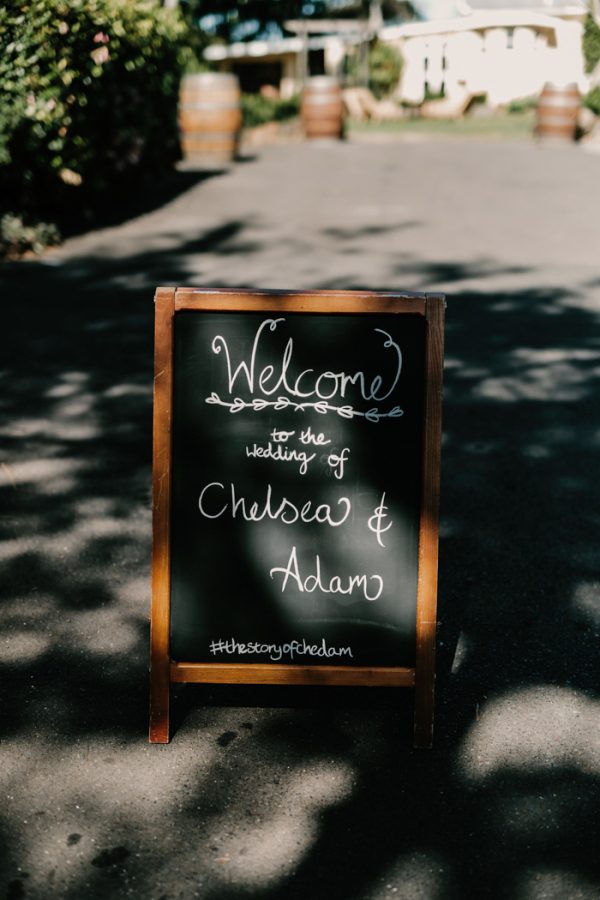 Welcome
to the
wedding of
Chelsea &
Adam
#thestoryofchedam